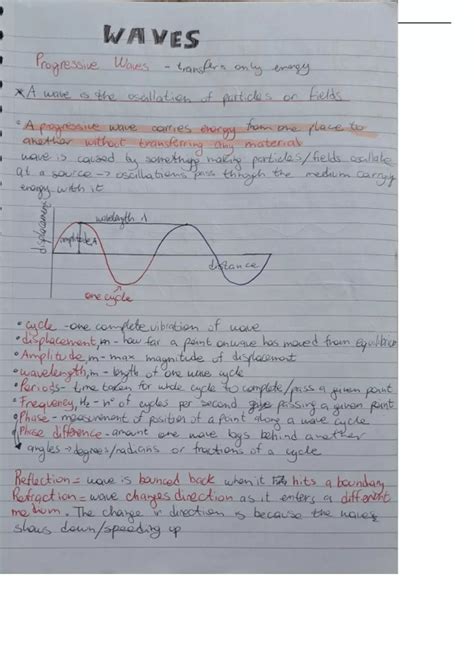 WAVES
Progressive Waves - transfers only energy
* A wave is the oscillation of particles or fields
• A progressive wave carries energy from one place to
another without transferring any material
wave is caused by something making particles/fields oscillate
at a source → oscillations pass through the medium carrying
energy with it
displacement
wavelength λ
amplitude A
distance
one cycle
• cycle - one complete vibration of wave
• displacement, m - how far a point on wave has moved from
• Amplitude, m - max magnitude of displacement
• wavelength, m - length of one wave cycle
• Periods - time taken for whole cycle to complete/pass a given point
• Frequency, Hz - n° of cycles per second passing a given point
• Phase - measurement of position of a point along a wave cycle
• Phase difference - amount one wave lags behind another
angles → degrees/radians or fractions of a cycle
Reflection = wave is bounced back when it hits a boundary
Refraction = wave changes direction as it enters a different
medium. The change in direction is because the waves
slows down/speeding up